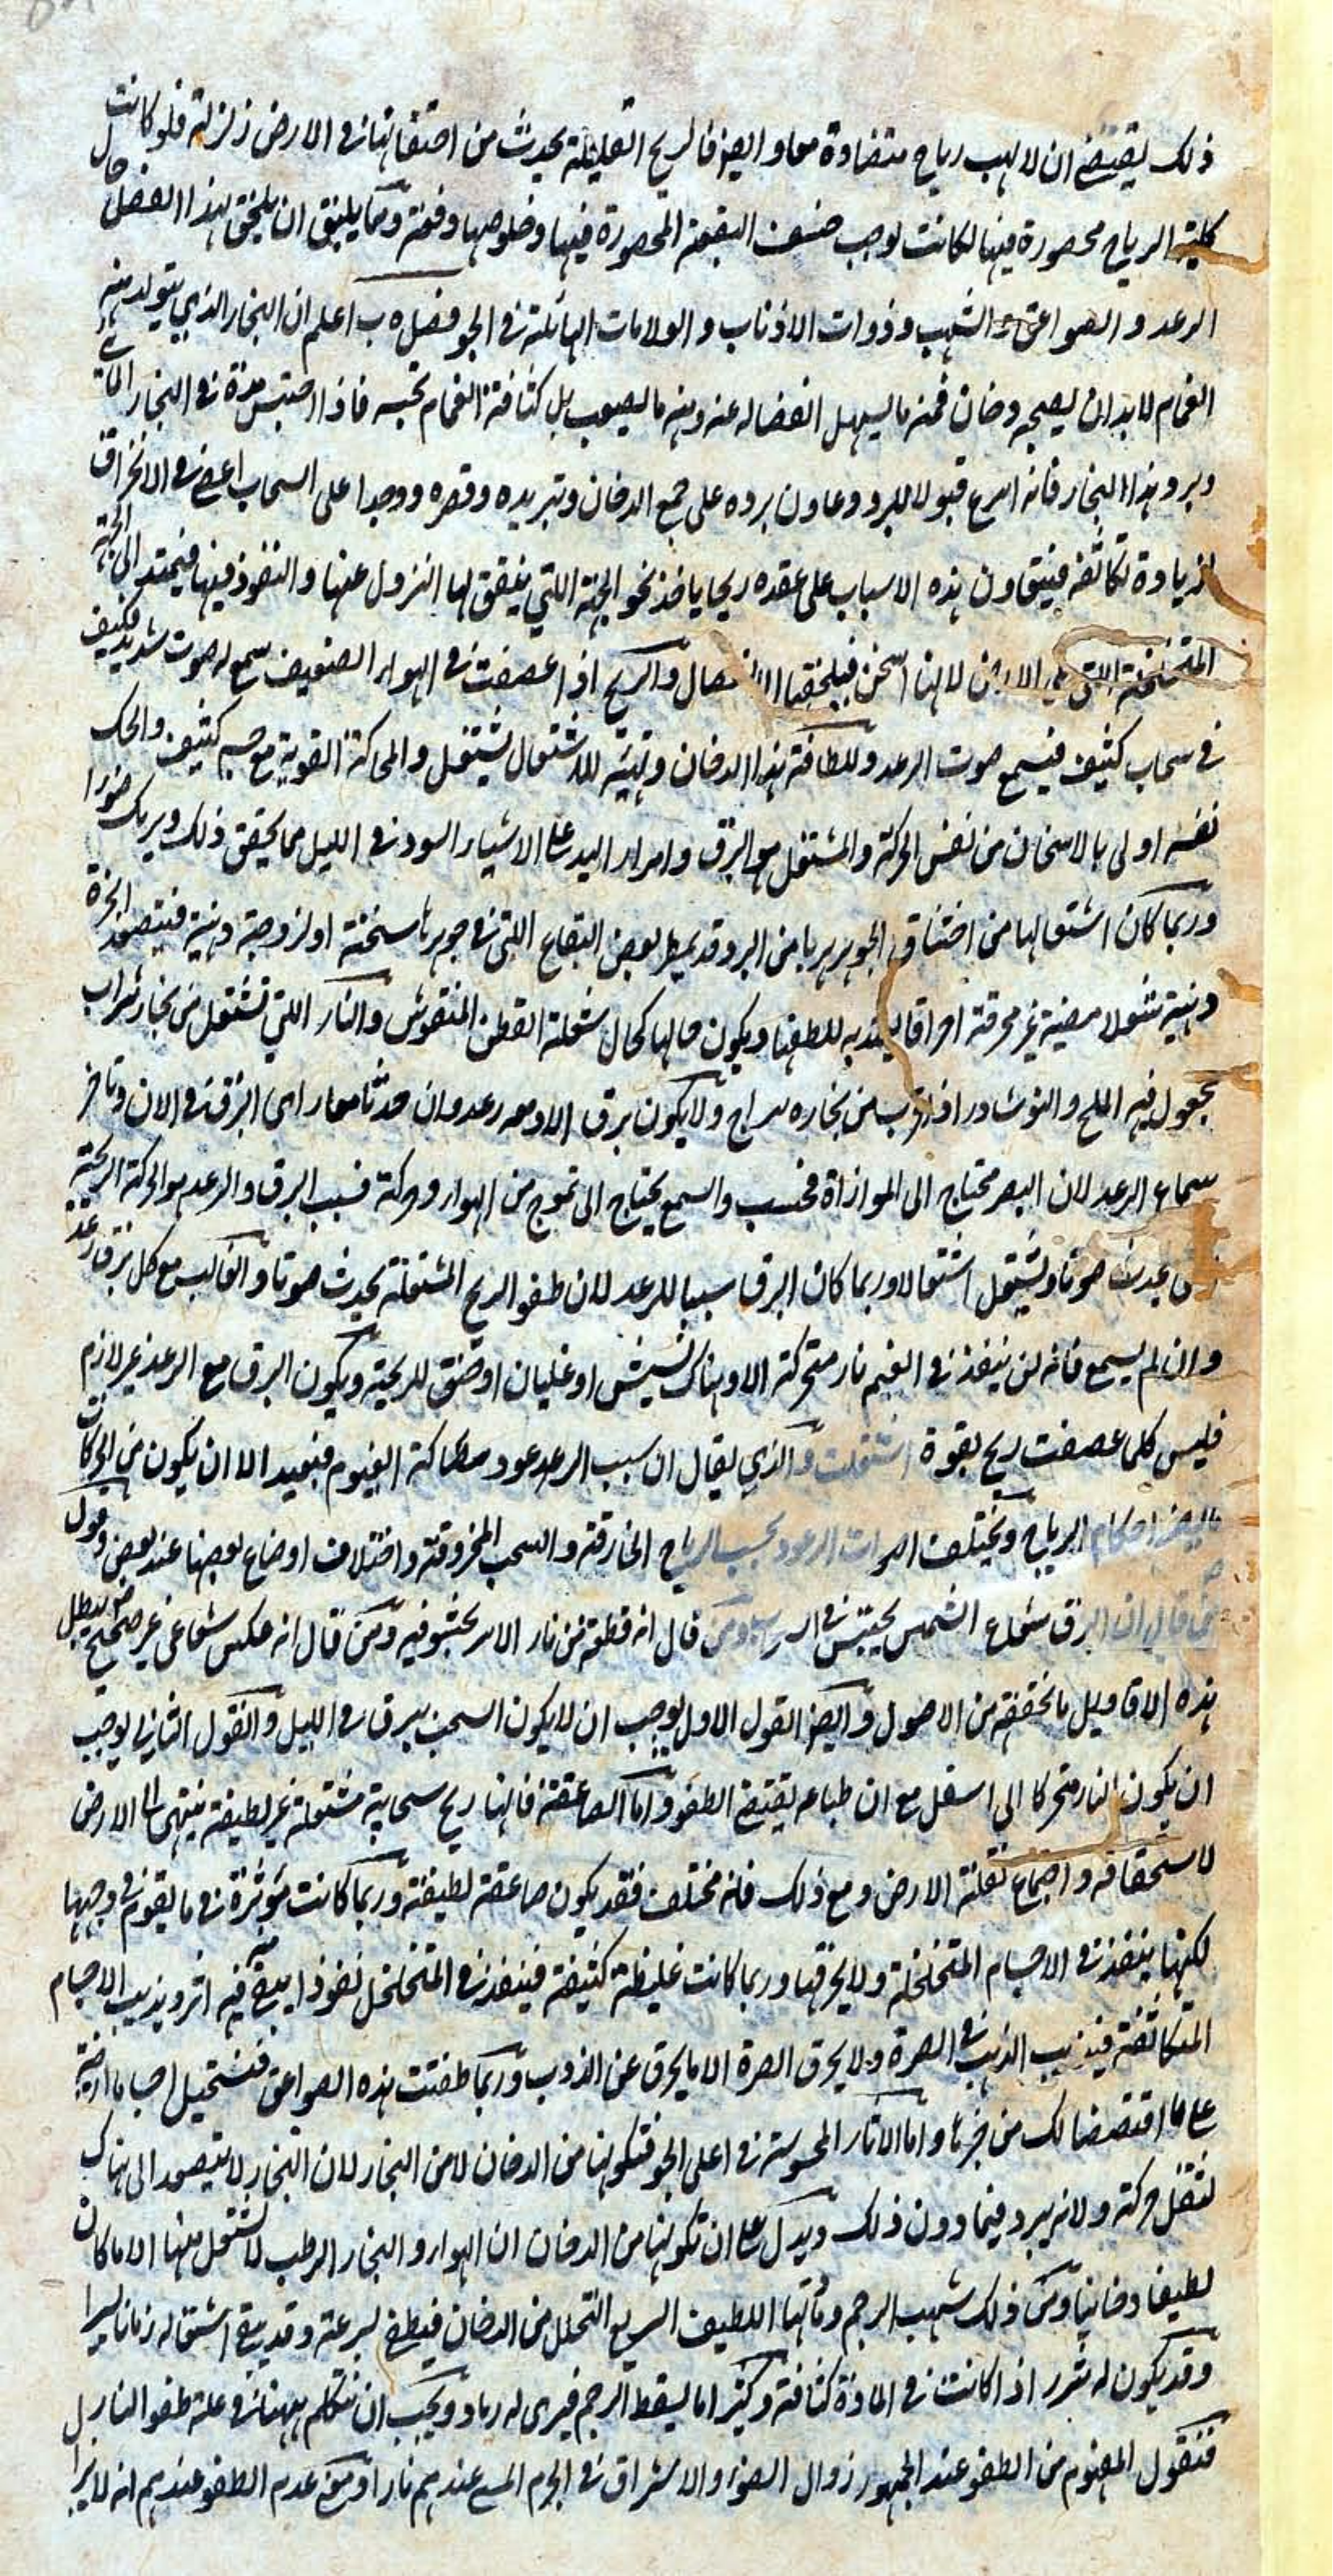 ذلك يقتضى ان لا يهب رياح متضادة معا و ايضا فالريح القليلة يحدث من احتقانها فى الارض زلزلة فلو كانت
كلية الرياح محصورة فيها لكانت يوجب خسف البقعة المحصورة فيها و خلوصها دفعة و مما يليق ان يلحق بهذا الفصل حال
الرعد و الصواعق و الشهب و ذوات الاذناب و العلامات الهائلة فى الجو فصل ه ب اعلم ان البخار الذى يتولد منه
الغمام لا بد ان يصحبه دخان فمنه ما يسهل انفصاله عنه و منه ما يصعب بل كثافة الغمام تحبسه فاذا احتبس مدة فى البخار المائى
و برد هذا البخار فانه اسرع قبولا للبرد و عاون برده على جمع الدخان و تبريده و قصره و وجدا على السحاب اعنى الانخراق
لزيادة تكاثفه فيتعاون هذه الاسباب على عقده ريحا ياخذ نحو الجهة اللتى يتفق لها النزول عنها و النفوذ فيها فيمتد الى الجهة
المتسخنة التى الارض لانها اسخن فيلحقها و الريح اذا عصفت فى الهواء الضعيف سمع له صوت شديد فكيف
فى سحاب كثيف فيسمع صوت الرعد و للطافة هذا الدخان و تهيئه للاشتعال يشتعل و المحاكة القوية مع جسم كثيف و الحك
نفسه اولى بالاسخان من نفس الحركة و المشتعل هو البرق و امرار اليد على الاشياء السود فى الليل مما يحقق ذلك و يريك ضوءا
و ربما كان اشتعالها من اختناق الجوهر هربا من البرد و قد يمطر بعض البقاع اللتى فى جوهرها سخنة او لزوجة دهنية فيتصعد ابخرة
دهنية شعولا مضيئة غير محرقة احراقا يعتد به للطفها و يكون حالها كحال شعلة القطن المنقوش و النار اللتى تشتعل من بخار شراب
يجعول فيه الملح و النوشادر اذا قرب من بخاره سراج و لا يكون برق الا و معه رعد و ان حدثا معا راى البرق فى الان و تاخر
سماع الرعد لان البصر محتاج الى الموازاة فحسب و السمع يحتاج الى تموج من الهواء و حركة فسبب البرق و الرعد هو الحركة الريحية
يحدث صوتا و يشتعل اشتعالا و ربما كان البرق سببا للرعد لان طفو الريح المشتعلة يحدث صوتا و الغالب مع كل برق رعد
و ان لم يسمع فانه لن ينفذ فى الغيم نار متحركة الا و هناك نشيش او غليان او خنق للريحية و يكون البرق مع الرعد غير لازم
فليس كلما عصفت ريح بقوة اشتعلت و الذى يقال ان سبب الرعد مصاكة الغيوم فبعيد الا ان يكون من الحركات
احكام الرياح و يختلف اصوات الرعود بحسب الرياح الخارقة و السحب المخروقة و اختلاف اوضاع بعضها عند بعض و قول
من قال ان البرق شعاع الشمس يحتبس فى و من قال انه قطعة من نار الاثير يختبو فيه و من قال انه عكس شعاعى غير صحيح يبطل
هذه الاقاويل ما تحققته من الاصول و ايضا القول الاول يوجب ان لا يكون السحب يبرق فى الليل و القول الثانى يوجب
ان يكون النار متحركا الى اسفل مع ان طباعه يقتضى الطفو و اما الصاعقة فانها ريح سحابية مشتعلة غير لطيفة ينتهى الى الارض
لاستحقافه و اجماع ثقلته الارض و مع ذلك فانه مختلف فقد يكون صاعقة لطيفة و ربما كانت مؤثرة فى ما يقوم فى وجهها
لكنها ينفذ فى الاجسام المتخلخلة و لا يحرقها و ربما كانت غليظة كثيفة فينفذ فى المتخلخل نفوذا يبقى فيه اثر و يذيب الاجسام
المتكاثفة فيذيب الذهب فى الصرة و لا يحرق الصرة الا ما يحرق عن الذوب و ربما طفئت هذه الصواعق فتستحيل اجساما ارضية
على ما اقتصصنا لك من خبرها و اما الاثار المحسوسة فى اعلى الجو فتكونها من الدخان لا من البخار لان البخار لا يتصعد الى هناك
لثقل حركته و لانه يبرد فيما دون ذلك و يدل على ان تكونها من الدخان ان الهواء و البخار الرطب لا يشتعل منها الا ما كان
لطيفا دخانيا و من ذلك شهب الرجم و مادتها اللطيف السريع التحلل من الدخان فيطفى لسرعته و قد يبقى اشتعاله زمانا يسيرا
و قد يكون له شرر اذا كانت فى المادة كثافة و كثيرا ما يسقط الرجم فيرى له رماد و يجب ان نتكلم ههنا فى علة طفو النار بل
فنقول المفهوم من الطفو عند الجمهور زوال الضوء و الاشراق فى الجرم المسمى عندهم نارا و معنى عدم الطفو عندهم انه لا يرا